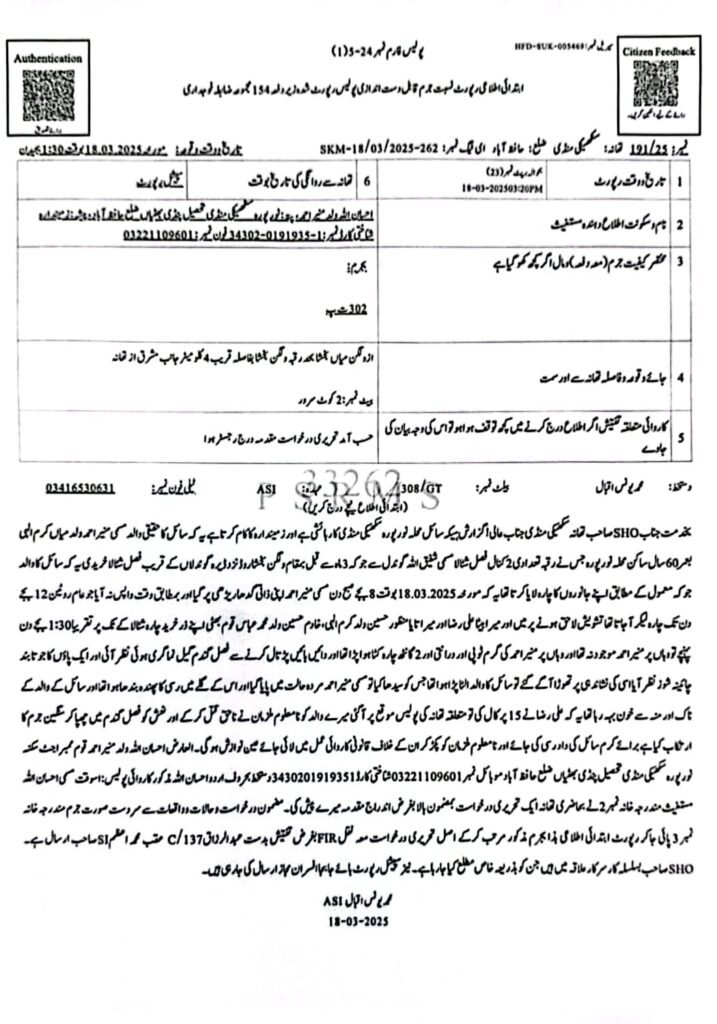 Authentication
برائے تصدیق
پولیس فارم نمبر 24-5(1)
سیریل نمبر: HFD-SUK-005469
Citizen Feedback
برائے کے لیے سکین کریں۔
ابتدائی اطلاعی رپورٹ نسبت جرم قابل دست اندازی پولیس رپورٹ شدہ زیر دفعہ 154 مجموعہ ضابطہ فوجداری
نمبر: 191/25 تھانہ: سکھیکی منڈی ضلع: حافظ آباد ای ٹیگ نمبر: SKM-18/03/2025-262 تاریخ و وقت وقوعہ: مورخہ 18.03.2025 بوقت 1:30 بجے دن
1 تاریخ و وقت رپورٹ بحوالہ رپٹ نمبر (23) 18-03-2025 03:20PM 6 تھانہ سے روانگی کی تاریخ و وقت سپیشل رپورٹ
2 نام و سکونت اطلاع دہندہ مستغیث احسان اللہ ولد منیر احمد، پتہ: نور پورہ سکھیکی منڈی تحصیل پنڈی بھٹیاں ضلع حافظ آباد، پیشہ: زمیندارہ
شناختی کارڈ نمبر: 34302-0191935-1 فون نمبر: 03221109601
3 مختصر کیفیت جرم (معہ دفعہ) و مال اگر کچھ کھو گیا ہے بجرم:
302 ت پ
4 جائے وقوعہ و فاصلہ تھانہ سے اور سمت از ونگن میاں بلنشا بحد رقبہ ونگن بلنشا بفاصلہ قریب 4 کلو میٹر جانب مشرق از تھانہ
بیٹ نمبر: 2 کوٹ سرور
5 کاروائی متعلقہ تفتیش اگر اطلاع درج کرنے میں کچھ توقف ہوا ہو تو اس کی وجہ بیان کی جاوے حسب آمد تحریری درخواست مقدمہ درج رجسٹر ہوا
دستخط: محمد یونس اقبال بیلٹ نمبر: 308/GT عہدہ: ASI ٹیلی فون نمبر: 03416530631
33262
PSRMS
(ابتدائی اطلاع نیچے درج کریں)
بخدمت جناب SHO صاحب تھانہ سکھیکی منڈی جناب عالی! گزارش ہیکہ سائل محلہ نور پورہ سکھیکی منڈی کا رہائشی ہے اور زمیندارہ کا کام کرتا ہے یہ کہ سائل کا حقیقی والد مسمی منیر احمد ولد میاں کرم الہی
بعمر 60 سال ساکن محلہ نور پورہ جس نے رقبہ تعدادی 2 کنال فصل شٹالا مسمی شفیق اللہ گوندل سے جو کہ 3 ماہ سے قبل بمقام ونگن بلنشا نزد ڈیرہ گوندلاں کے قریب فصل شٹالا خریدی یہ کہ سائل کا والد
جو کہ معمول کے مطابق اپنے جانوروں کا چارہ لایا کرتا تھا یہ کہ مورخہ 18.03.2025 بوقت 8 بجے صبح دن مسمی منیر احمد اپنی ذاتی گدھا ریڑھی پر گیا اور بمطابق وقت واپس نہ آیا جو عام روٹین 12 بجے
دن تک چارہ لیکر آ جاتا تھا تشویش لاحق ہونے پر میں اور میرا بیٹا علی رضا اور میرا تایا منظور حسین ولد کرم الہی، خادم حسین ولد محمد عباس قوم بھٹی اپنے زر خرید چارہ شٹالا کے تک پر تقریباً 1:30 بجے دن
پہنچے تو وہاں پر منیر احمد موجود نہ تھا اور وہاں پر منیر احمد کی گرم ٹوپی اور درانتی اور 2 گانٹھ چارہ کٹا ہوا پڑا تھا اور دائیں بائیں پڑتال کرنے سے فصل گندم گیل نما گری ہوئی نظر آئی اور ایک پاؤں کا جوتا بند
چائینہ شوز نظر آیا اسی کی نشاندہی پر تھوڑا آگے گئے تو سائل کا والد الٹا پڑا ہوا تھا جس کو سیدھا کیا تو مسمی منیر احمد مردہ حالت میں پایا گیا اور اس کے گلے میں رسی کا پھندہ بندھا ہوا تھا اور سائل کے والد کے
ناک اور منہ سے خون بہہ رہا تھا یہ کہ علی رضا نے 15 پر کال کی تو متعلقہ تھانہ کی پولیس موقع پر آ گئی میرے والد کو نامعلوم ملزمان نے ناحق قتل کر کے اور نعش کو فصل گندم میں چھپا کر سنگین جرم کا
ارتکاب کیا ہے برائے کرم سائل کی داد رسی کی جائے اور نامعلوم ملزمان کو پکڑ کر ان کے خلاف قانونی کاروائی عمل میں لائی جائے عین نوازش ہو گی۔ العارض احسان اللہ ولد منیر احمد قوم ممبر اجٹ سکنہ
نور پورہ سکھیکی منڈی تحصیل پنڈی بھٹیاں ضلع حافظ آباد موبائل نمبر 03221109601 شناختی کارڈ 3430201919351 دستخط بحروف اردو احسان اللہ مذکور کاروائی پولیس: اسوقت مسمی احسان اللہ
مستغیث مندرجہ خانہ نمبر 2 نے بحاضری تھانہ ایک تحریری درخواست بمضمون بالا بغرض اندراج مقدمہ میرے پیش کی۔ مضمون درخواست و حالات و واقعات سے سر دست صورت جرم مندرجہ خانہ
نمبر 3 پائی جا کر رپورٹ ابتدائی اطلاعی ہذا بجرم مذکور مرتب کر کے اصل تحریری درخواست معہ نقل FIR بغرض تفتیش بدست عبدالرزاق C/137 عقب محمد اعظم SI صاحب ارسال ہے۔
SHO صاحب بسلسلہ کار سرکار علاقہ میں ہیں جن کو بذریعہ خاص مطلع کیا جا رہا ہے۔ نیز سپیشل رپورٹ ہائے جابجا افسران مجاز ارسال کی جا رہی ہیں۔
محمد یونس اقبال ASI
18-03-2025